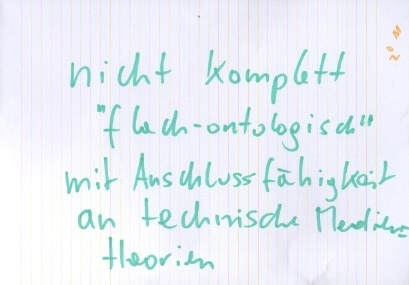 nicht komplett
"flach-ontologisch"
mit Anschlussfähigkeit
an technische Medien-
theorien